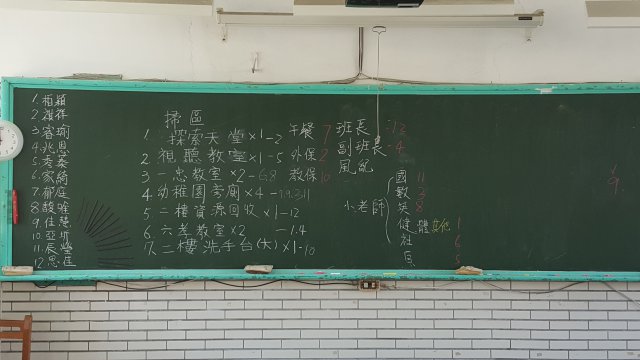 1. 柏穎
2. 視祥
3. 容瑜
4. 兆恩
5. 秀蓁
6. 家綺
7. 郁庭
8. 馥
9. 佳慧
10. 亞
11. 辰瑩
12. 思匡
掃區
1. 探索天堂×1-2
2 視聽教室×1-5
3 一忠教室×2-6.8
4 幼稚園旁廁×4-7.9.3.11
5 二樓資源回收×1-12
6 六孝教室×2-1.4
7. 二樓洗手台(大)×1-10
午餐 7
外保 2
教保 10
班長 12
副班長 4
風紀
小老師
國 11
數 3
英 8
健體 其他 1
社 6
自 5
9.